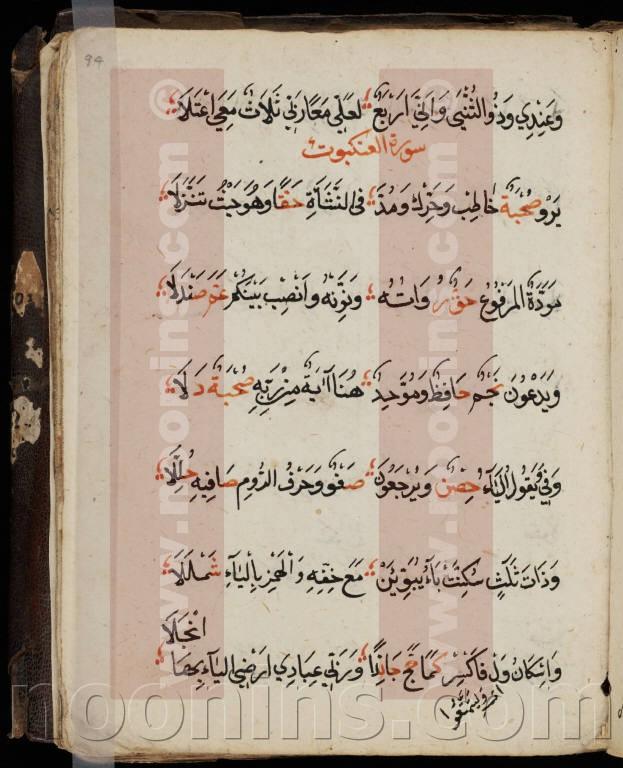 94
وَعِنْدِي وَذُو الثُّنْيَى وَإِنِّي أَرْبَعٌ لَعَلِّي مَعًا رَبِّي ثَلَاثٌ مَعِي اعْتَلَا
سورة العنكبوت
يَرَوْا صُحْبَةٌ خَاطِبْ وَحَرِّكْ وَمُدَّ فِى النَّشَاةِ حَقًّا وَهُوَ حَيْثُ تَنَزَّلَا
مَوَدَّةً المَرْفُوعُ حَقُّ رُوَاتُهُ وَنَوِّنْهُ وانْصِبْ بَيْنَكُمْ عَمَّ صَنْدَلَا
وَيَدْعُونَ نَجْمٌ حَافِظٌ وَمُوَحِّدٌ هُنَا آيَةٌ مِنْ رَبِّهِ صُحْبَةٌ دَلَا
وَفِي وَيَقُولُ اليَآءُ حِصْنٌ وَيُرْجَعُونَ صَفْوٌ وَحَرْفُ الرُّومِ صَافِيهِ حُلِّلَا
وَذَاتُ ثَلَثٍ سُكِّنَتْ بَآءُ نُبَوِّئَنْ مَعَ خِفِّهِ وَالهَمْزِ بِاليَآءِ شَمْلَلَا
وَإِسْكَانُ وَلْ فَاكْسِرْ كَمَا حَجَّ جَا نِدًا وَرَبِّي عِبَادِي أَرْضِي اليَآءُ بِهَا انْجَلَا
© www.noonins.com
© www.noonins.com
noonins.com